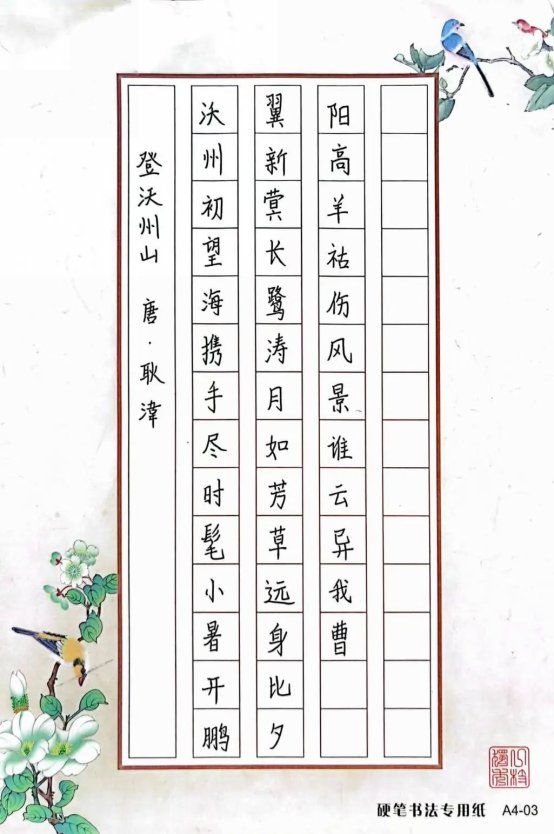 登沃州山 唐·耿湋
沃州初望海携手尽时髦小暑开鹏
翼新蓂长鹭涛月如芳草远身比夕
阳高羊祜伤风景谁云异我曹
硬笔书法专用纸 A4-03